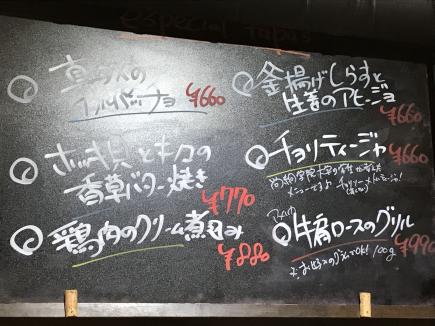 especial tapas
真ダコの
カルパッチョ
¥660
ホッキ貝とキノコの
香草バター焼き
¥770
鶏肉のクリーム煮込み
¥886
釜揚げしらすと
生姜のアヒージョ
¥660
チョリティージャ
¥660
メニューですよ
牛肩ロースのグリル
¥990
100g